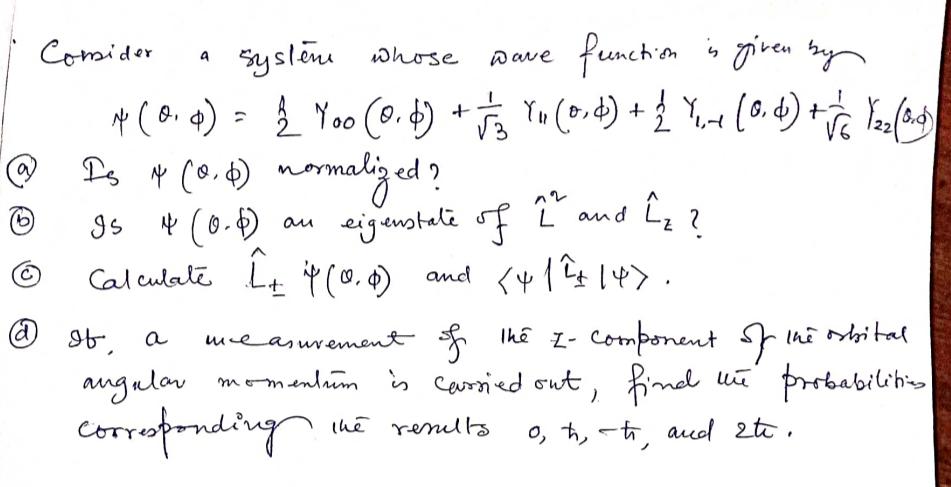 Consider a system whose wave function is given by
ψ(θ,φ) = 1/2 Y₀₀(θ,φ) + 1/√3 Y₁₁(θ,φ) + 1/2 Y₁,₋₁(θ,φ) + 1/√6 Y₂₂(θ,φ)
(a) Is ψ(θ,φ) normalized?
(b) Is ψ(θ,φ) an eigenstate of L̂² and L̂z ?
(c) Calculate L̂± ψ(θ,φ) and <ψ|L̂±|ψ>.
(d) If, a measurement of the z-component of the orbital
angular momentum is carried out, find the probabilities
corresponding the results 0, ħ, -ħ, and 2ħ.